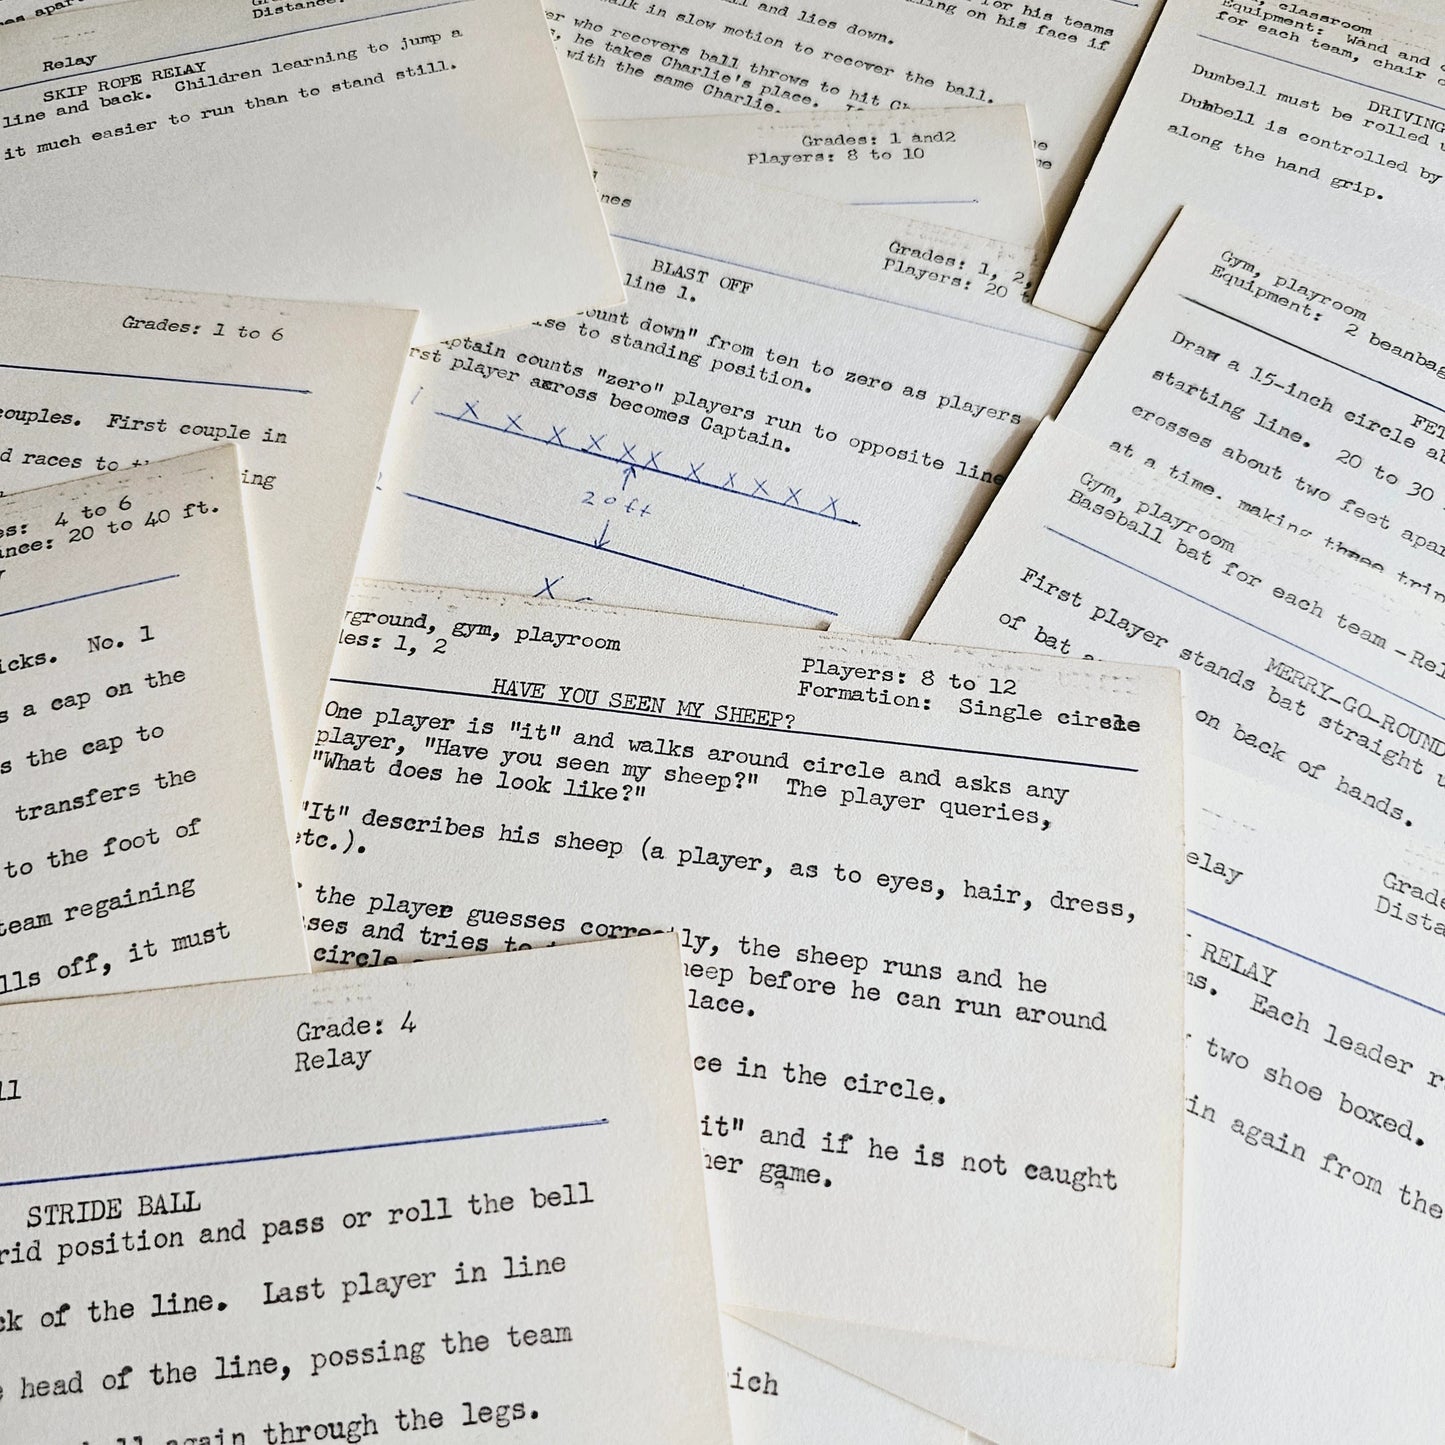 Relay
Distance:
SKIP ROPE RELAY
line and back. Children learning to jump a
it much easier to run than to stand still.
for his teams
on his face if
and lies down.
in slow motion to recover the ball.
who recovers ball throws to hit
he takes Charlie's place.
with the same Charlie.
classroom
Equipment: Wand and
for each team, chair
DRIVING
Dumbell must be rolled
Dumbell is controlled by
along the hand grip.
Grades: 1 and2
Players: 8 to 10
Grades: 1, 2,
Players: 20
BLAST OFF
line 1.
count down" from ten to zero as players
to standing position.
counts "zero" players run to opposite line
player across becomes Captain.
X X X X X X X X X X X
20 ft
X
Gym, playroom
Equipment: 2 beanbag
Draw a 15-inch circle
starting line. 20 to 30
crosses about two feet apar
at a time. making three
Grades: 1 to 6
couples. First couple in
races to
4 to 6
20 to 40 ft.
No. 1
a cap on the
the cap to
transfers the
to the foot of
team regaining
off, it must
Gym, playroom
Baseball bat for each team - Rel
MERRY-GO-ROUND
First player stands bat straight
of bat
on back of hands.
gym, playroom
1, 2
Players: 8 to 12
Formation: Single circle
HAVE YOU SEEN MY SHEEP?
One player is "it" and walks around circle and asks any
player, "Have you seen my sheep?" The player queries,
"What does he look like?"
"It" describes his sheep (a player, as to eyes, hair, dress,
etc.).
the player guesses correctly, the sheep runs and he
and tries to
before he can run around
circle
in the circle.
it" and if he is not caught
game.
Grade
Dista
RELAY
Each leader
two shoe boxed.
again from the
Grade: 4
Relay
STRIDE BALL
position and pass or roll the bell
of the line. Last player in line
head of the line, possing the team
again through the legs.